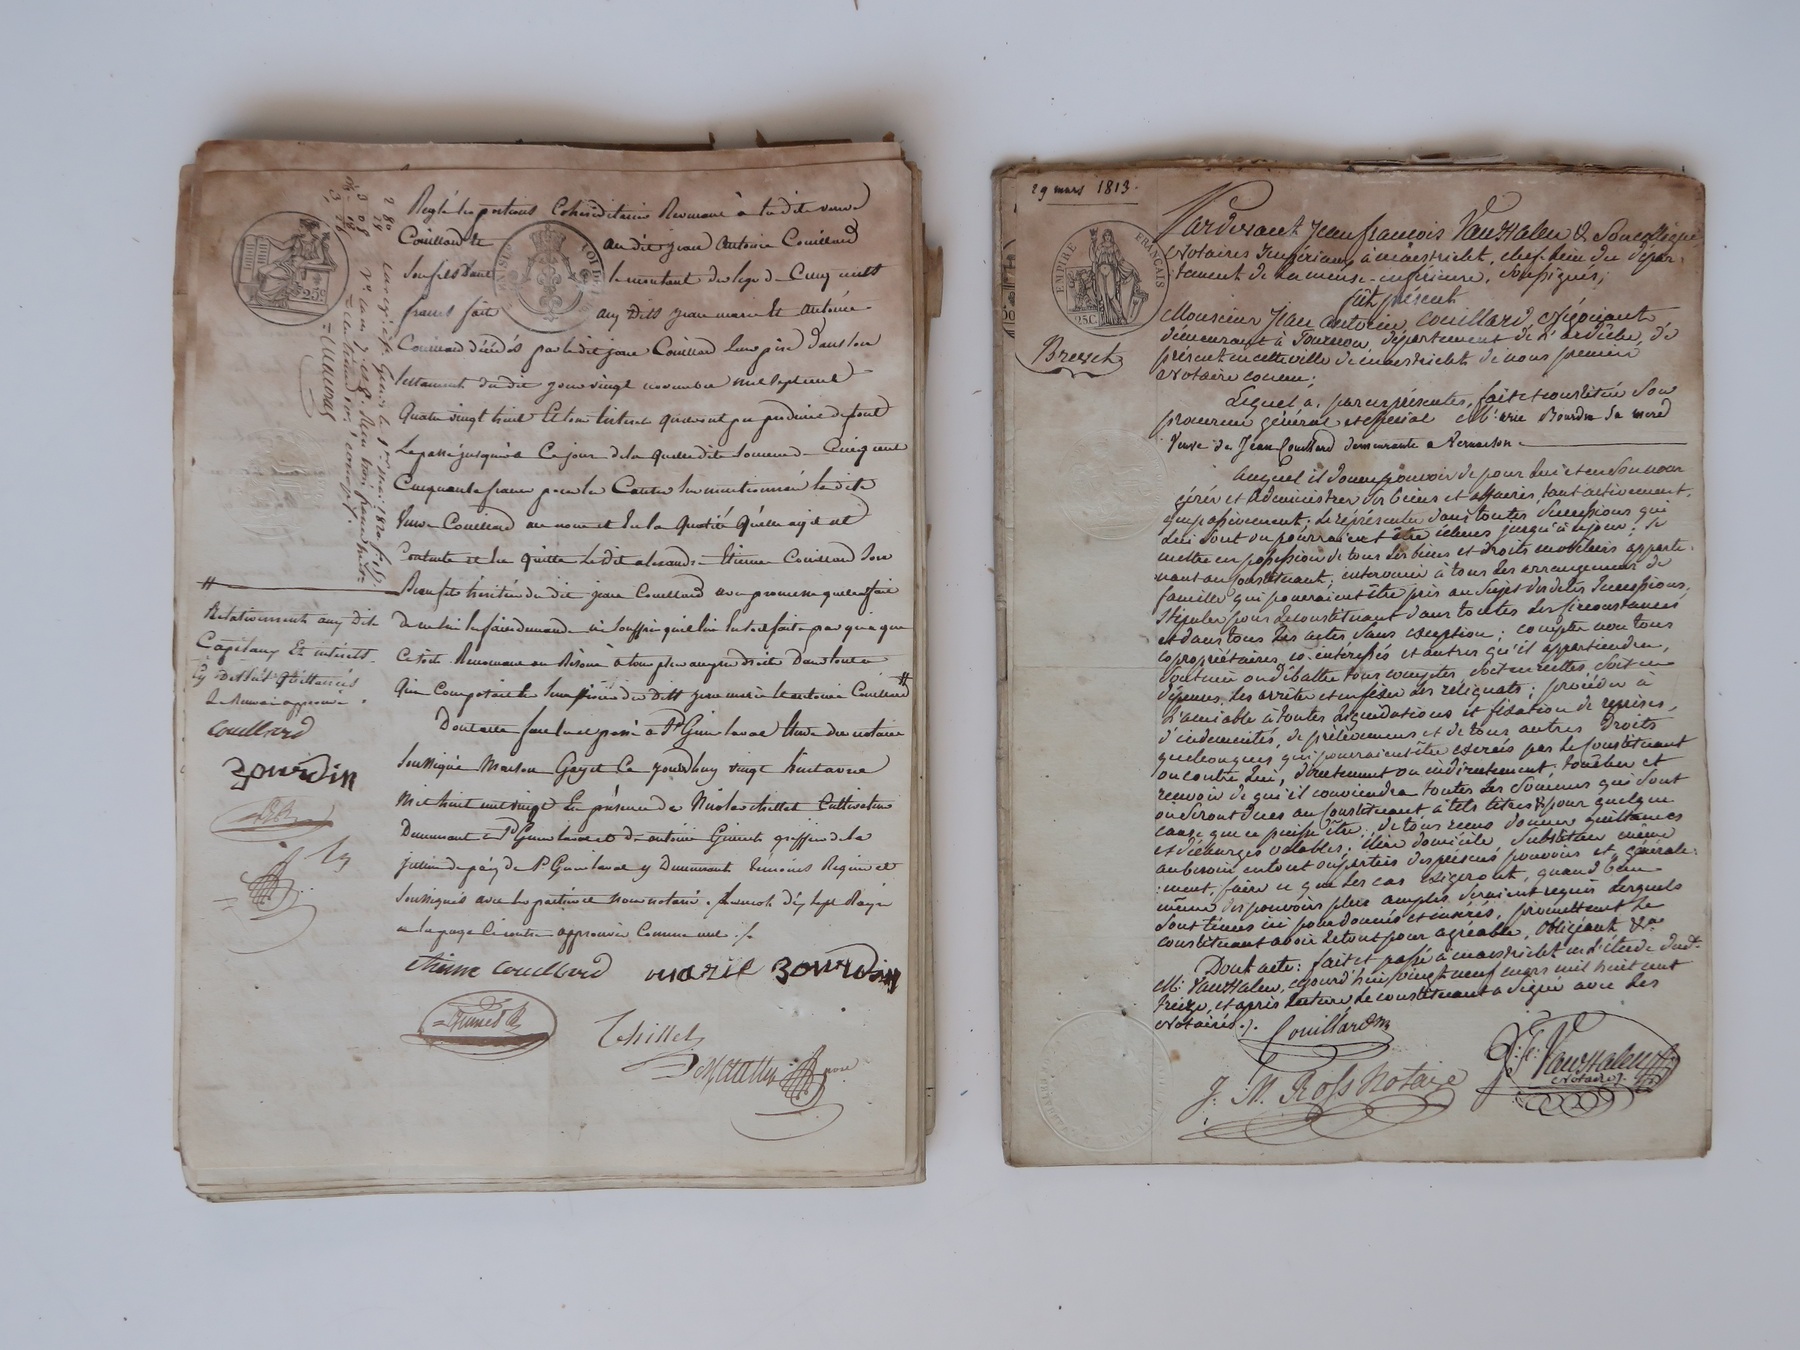 Réglé les portions Cohéréditaires Revenant à la dite veuve
Couillard et au dit jean Antoine Couillard
Son fils dans le montant du legs de Cinq mille
francs fait aux Dits jean marie Et antoine
Couillard décédés par le dit jean Couillard leur père Dans son
testament du dit jour vingt novembre mil sept cent
Quatre vingt huit Et les Intérêts
Le passé jusqu'à Ce jour de la quelle dite Somme de Cinq cent
Cinquante francs pour les Causes sus mentionnées la dite
Veuve Couillard au nom et En la Qualité Qu'elle agit est
Contente et En quitte Le dit alexandre Etienne Couillard Son
Beau fils héritier du dit jean Couillard avec promesse
De ne lui En faire demande ni Souffrir qu'il lui En soit fait par qui que
Ce soit Renonçant
Qui Composaient les Successions des dits jean marie et antoine Couillard #
Dont acte fait lu et passé à St Genis laval Etude du notaire
Soussigné Maison Gayet Ce jourd'huy vingt huit avril
Mil huit cent vingt En présence de Nicolas thillet Cultivateur
Demeurant à St Genis laval et De antoine greffier de la
justice de paix de St Genis laval y Demeurant témoins Requis et
Soussignés avec les parties et nous notaire. Les mots dix sept Rayés
a la page Ci contre approuvés Comme nuls ./.
etienne couillard marie Bourdin
thillet
25c
#
Relativement aux dits
Capitaux Et intérêts
Le Renvoi approuvé
Couillard
Bourdin
29 mars 1813.
EMPIRE FRANÇAIS
25 C.
Brevet
Pardevant Jean françois Van Halen & Son collègue
Notaires Impériaux à maestricht, chef-lieu du dépar-
tement de la meuse-inférieure, soussignés;
fût présent
Monsieur Jean Antoine Couillard, Négociant
demeurant à Tournon, département de l'ardèche, de
présent en cette ville de maestricht de nous premier
Notaire connu;
Lequel a, par ces présentes, fait et constitué Son
procureur général et spécial Marie Bourdin Sa mère
Veuve de Jean Couillard demeurante a Vernaison
Auquel il donne pouvoir de pour lui et en Son nom
gérer et Administrer Ses biens et affaires, tant activement
que passivement; Le représenter dans toutes Successions qui
Lui sont ou pourraient être échues jusqu'à ce jour; Se
mettre en possession de tous Les biens et droits mobiliers apparte-
nant au constituant; intervenir à tous Les arrangemens de
famille qui pourraient être pris au Sujet desdites Successions,
Stipuler pour Le constituant dans toutes Les circonstances
et dans tous Les actes sans exception; compter avec tous
copropriétaires, co-intéressés et autres qu'il appartiendra,
Soutenir ou débattre tous comptes, Soit en recettes Soit en
dépenses, Les arrêter et en fixer Les reliquats; procéder à
L'amiable à toutes Liquidations et fixation de reprises,
d'indemnités, de prélèvemens et de tous autres Droits
quelconques qui pourraient être exercés par Le constituant
ou contre Lui, directement ou indirectement; toucher et
recevoir de qui il conviendra toutes Les Sommes qui Sont
ou Seront dues au constituant à tels titres & pour quelque
cause que ce puisse être; de tous reçus donner quittances
et décharges valables; élire domicile, Substituer même
au besoin en tout ou parties des présens pouvoirs et générale-
ment, faire ce que Les cas exigeront, quand bien
même des pouvoirs plus amples Seraient requis Lesquels
Sont tenus ici pour donnés et insérés, promettant Le
constituant avoir Le tout pour agréable, obligeant &a
Dont acte: fait et passé à maestricht en l'étude dudt
Mr. Van Halen, cejourd'hui vingt neuf mars mil huit cent
treize, et après lecture, Le constituant a Signé avec Les
Notaires ./.
Couillard
J: N. Ross Notaire
J: F: Van Halen
Notaire